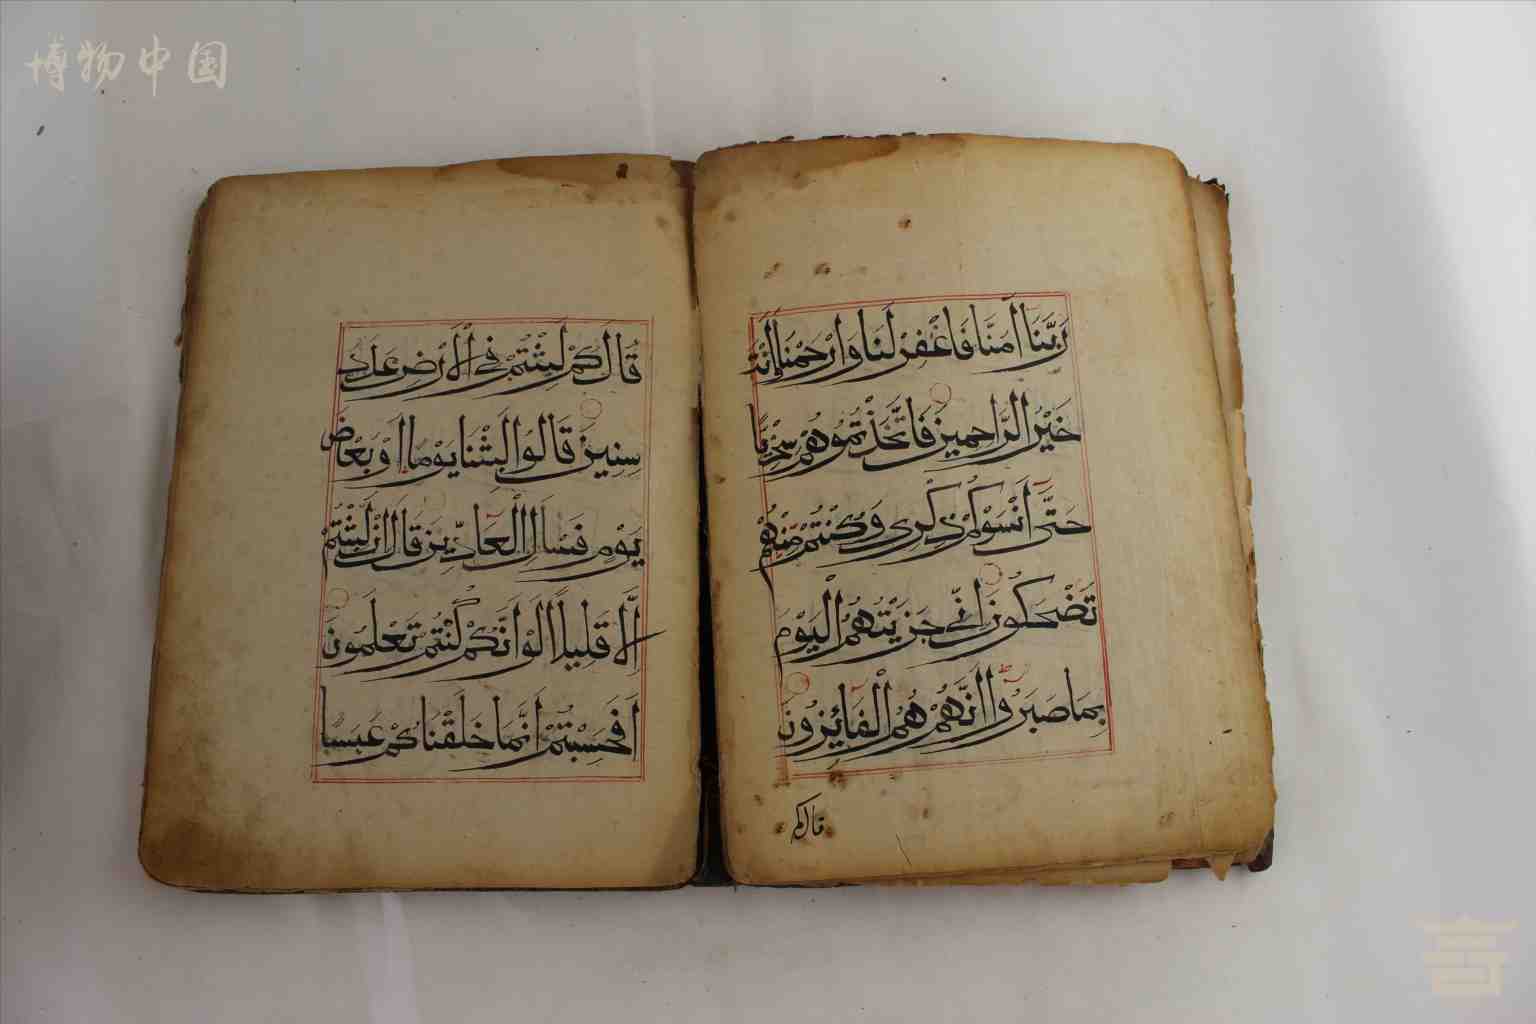 博物中国
رَبَّنَا آمَنَّا فَاغْفِرْ لَنَا وَارْحَمْنَا إِنْتَ
خَيْرُ الرَّاحِمِينَ فَاتَّخَذْتُمُوهُمْ سِخْرِيًّا
حَتَّى أَنْسَوْكُمْ ذِكْرِي وَكُنْتُمْ مِنْهُمْ
تَضْحَكُونَ إِنِّي جَزَيْتُهُمُ الْيَوْمَ
بِمَا صَبَرُوا أَنَّهُمْ هُمُ الْفَائِزُونَ
قال كم
قَالَ كَمْ لَبِثْتُمْ فِي الْأَرْضِ عَدَدَ
سِنِينَ قَالُوا لَبِثْنَا يَوْمًا أَوْ بَعْضَ
يَوْمٍ فَسْأَلِ الْعَادِّينَ قَالَ إِنْ لَبِثْتُمْ
إِلَّا قَلِيلًا لَوْ أَنَّكُمْ كُنْتُمْ تَعْلَمُونَ
أَفَحَسِبْتُمْ أَنَّمَا خَلَقْنَاكُمْ عَبَسًا